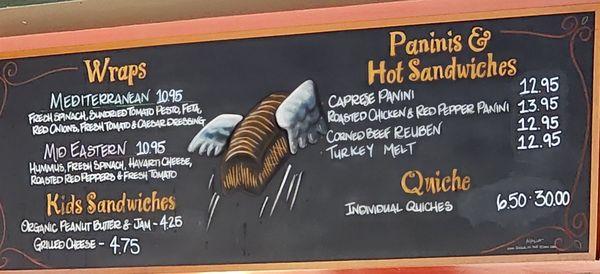 Wraps
MEDITERRANEAN 10.95
FRESH SPINACH, SUNDRIED TOMATO PESTO, FETA,
RED ONIONS, FRESH TOMATO & CAESAR DRESSING
MID EASTERN 10.95
HUMMUS, FRESH SPINACH, HAVARTI CHEESE,
ROASTED RED PEPPERS & FRESH TOMATO
Kids Sandwiches
ORGANIC PEANUT BUTTER & JAM - 4.25
GRILLED CHEESE - 4.75
Paninis &
Hot Sandwiches
CAPRESE PANINI 12.95
ROASTED CHICKEN & RED PEPPER PANINI 13.95
CORNED BEEF REUBEN 12.95
TURKEY MELT 12.95
Quiche
INDIVIDUAL QUICHES 6.50 - 30.00